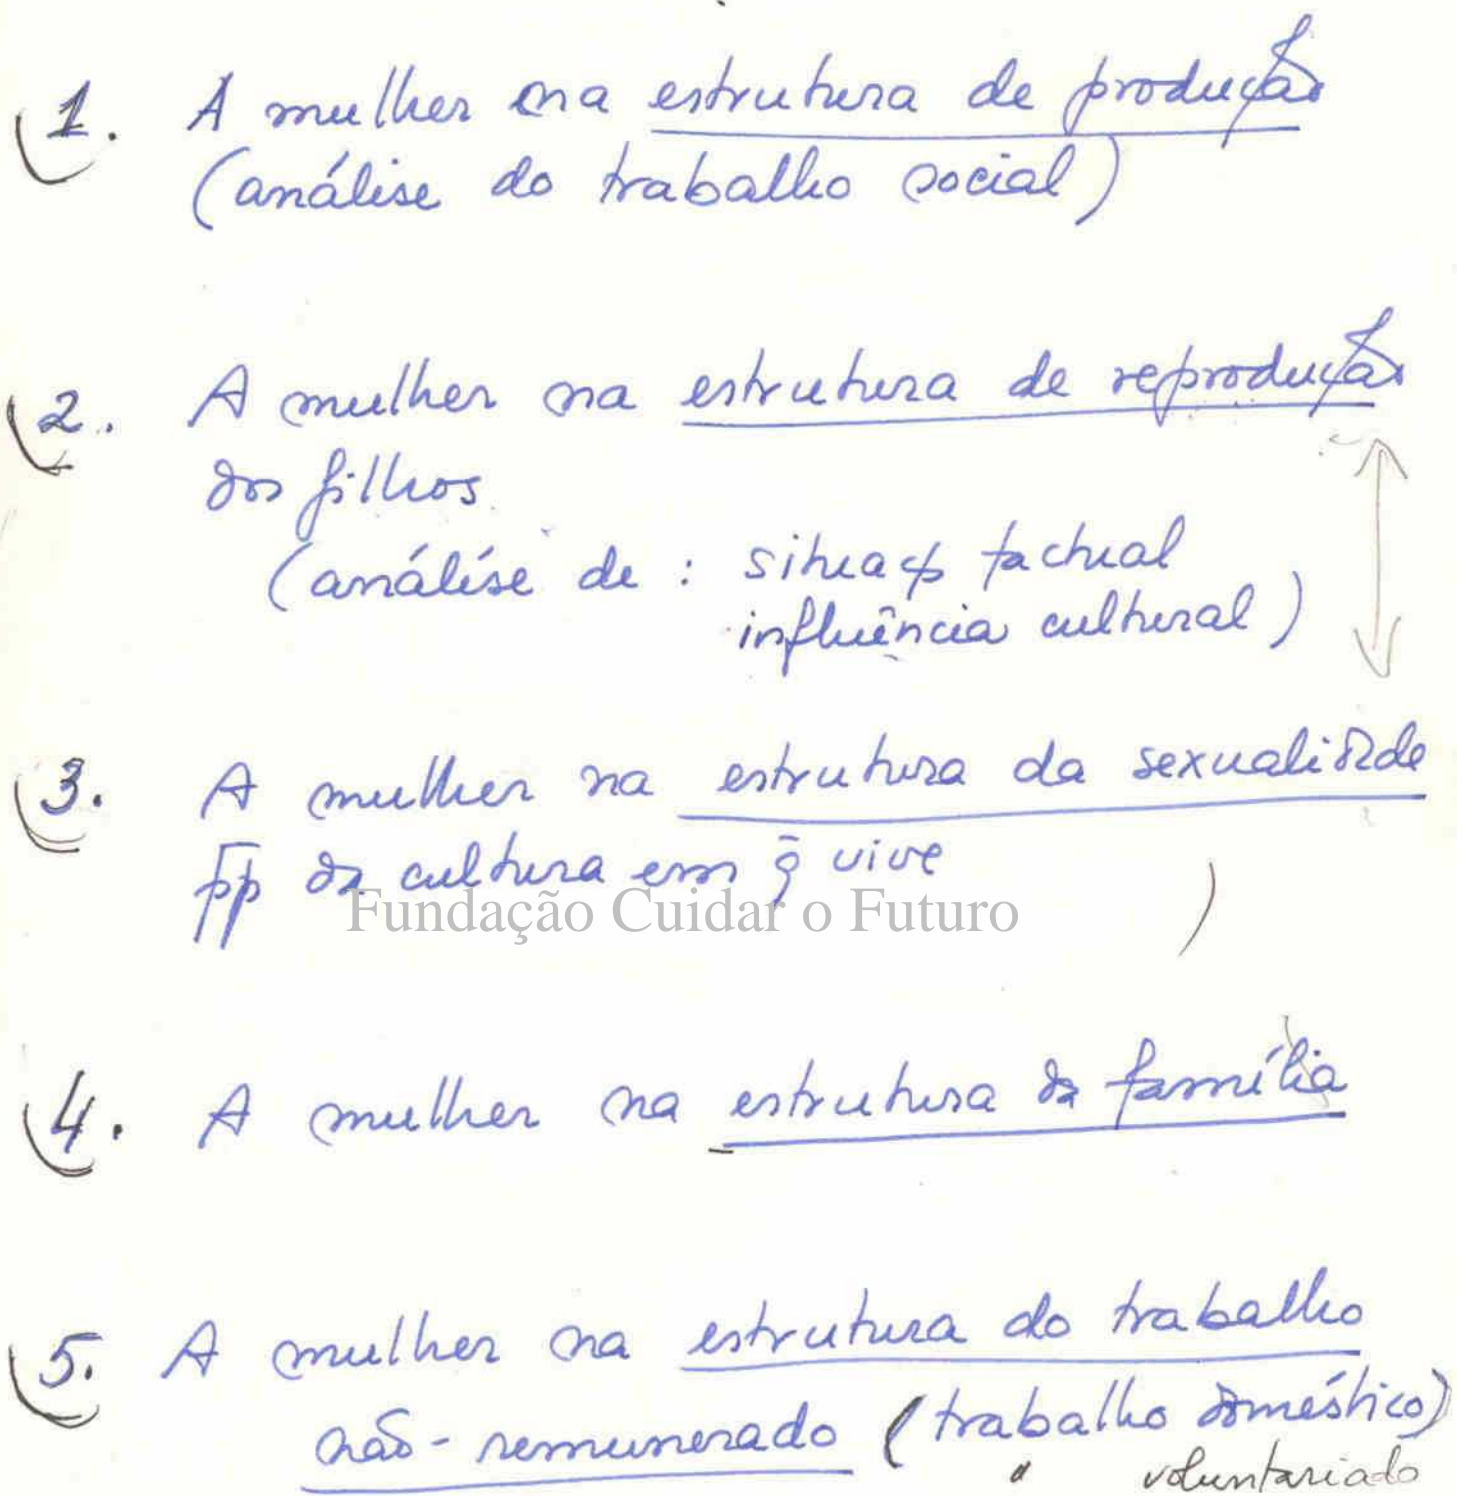 1. A mulher na estrutura de produção
(análise do trabalho social)
2. A mulher na estrutura de reprodução
dos filhos
(análise de : situaç factual
influência cultural)
3. A mulher na estrutura da sexualidade
pp da cultura em q̄ vive
Fundação Cuidar o Futuro
)
4. A mulher na estrutura da família
5. A mulher na estrutura do trabalho
não-remunerado (trabalho doméstico)
" voluntariado